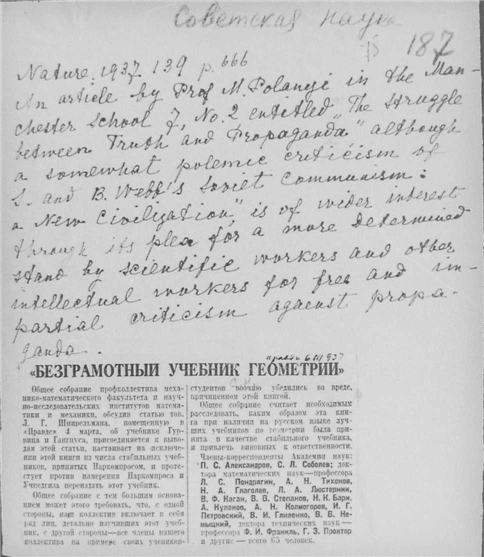 Советская наука
15 187
Nature 1937. 139 p. 666
An article by Prof M. Polanyi in the Man-
chester School 7, No. 2 entitled „The struggle
between Truth and Propaganda" although
a somewhat polemic criticism of
S. and B. Webb's Soviet Communism:
a New Civilization", is of wider interest
through its plea for a more determined
stand by scientific workers and other
intellectual workers for free and im-
partial criticism against propa-
ganda.
Правда 6 III 937
«БЕЗГРАМОТНЫЙ УЧЕБНИК ГЕОМЕТРИИ»
Общее собрание профколлектива меха-
нико-математического факультета и науч-
но-исследовательских институтов матема-
тики и механики, обсудив статью тов.
Л. Г. Шнирельмана, помещенную в
«Правде» 4 марта, об учебнике Гур-
вица и Гангнуса, присоединяется к выво-
дам этой статьи, настаивает на исключе-
нии этой книги из числа стабильных учеб-
ников, принятых Наркомпросом, и проте-
стует против намерения Наркомпроса и
Учпедгиза переиздать этот учебник.
Общее собрание с тем большим основа-
нием может этого требовать, что, с одной
стороны, наш коллектив включает в себя
ряд лиц, детально изучивших этот учеб-
ник, с другой стороны—все члены нашего
коллектива на примере своих учеников-
студентов воочию убедились во вреде,
причиненном этой книгой.
Общее собрание считает необходимым
расследовать, каким образом эта кни-
га при наличии на русском языке луч-
ших учебников по геометрии была при-
нята в качестве стабильного учебника,
и привлечь виновных к ответственности.
Члены-корреспонденты Академии наук:
П. С. Александров, С. Л. Соболев; док-
тора математических наук—профессора
Л. С. Пондрягин, А. Н. Тихонов,
Н. А. Глаголев, Л. А. Люстерник,
В. Ф. Каган, В. В. Степанов, Н. К. Бари,
А. Кулаков, А. Н. Колмогоров, И. Г.
Петровский, В. И. Гливенко, В. В. Не-
мыцкий, доктора технических наук—
профессора Ф. И. Франкль, Г. З. Проктор
и другие — всего 65 человек.